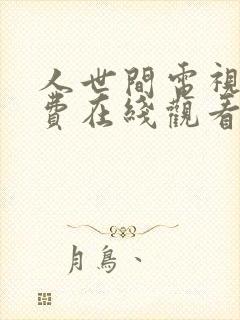 人世間電視
費在綫觀看
月鳥、